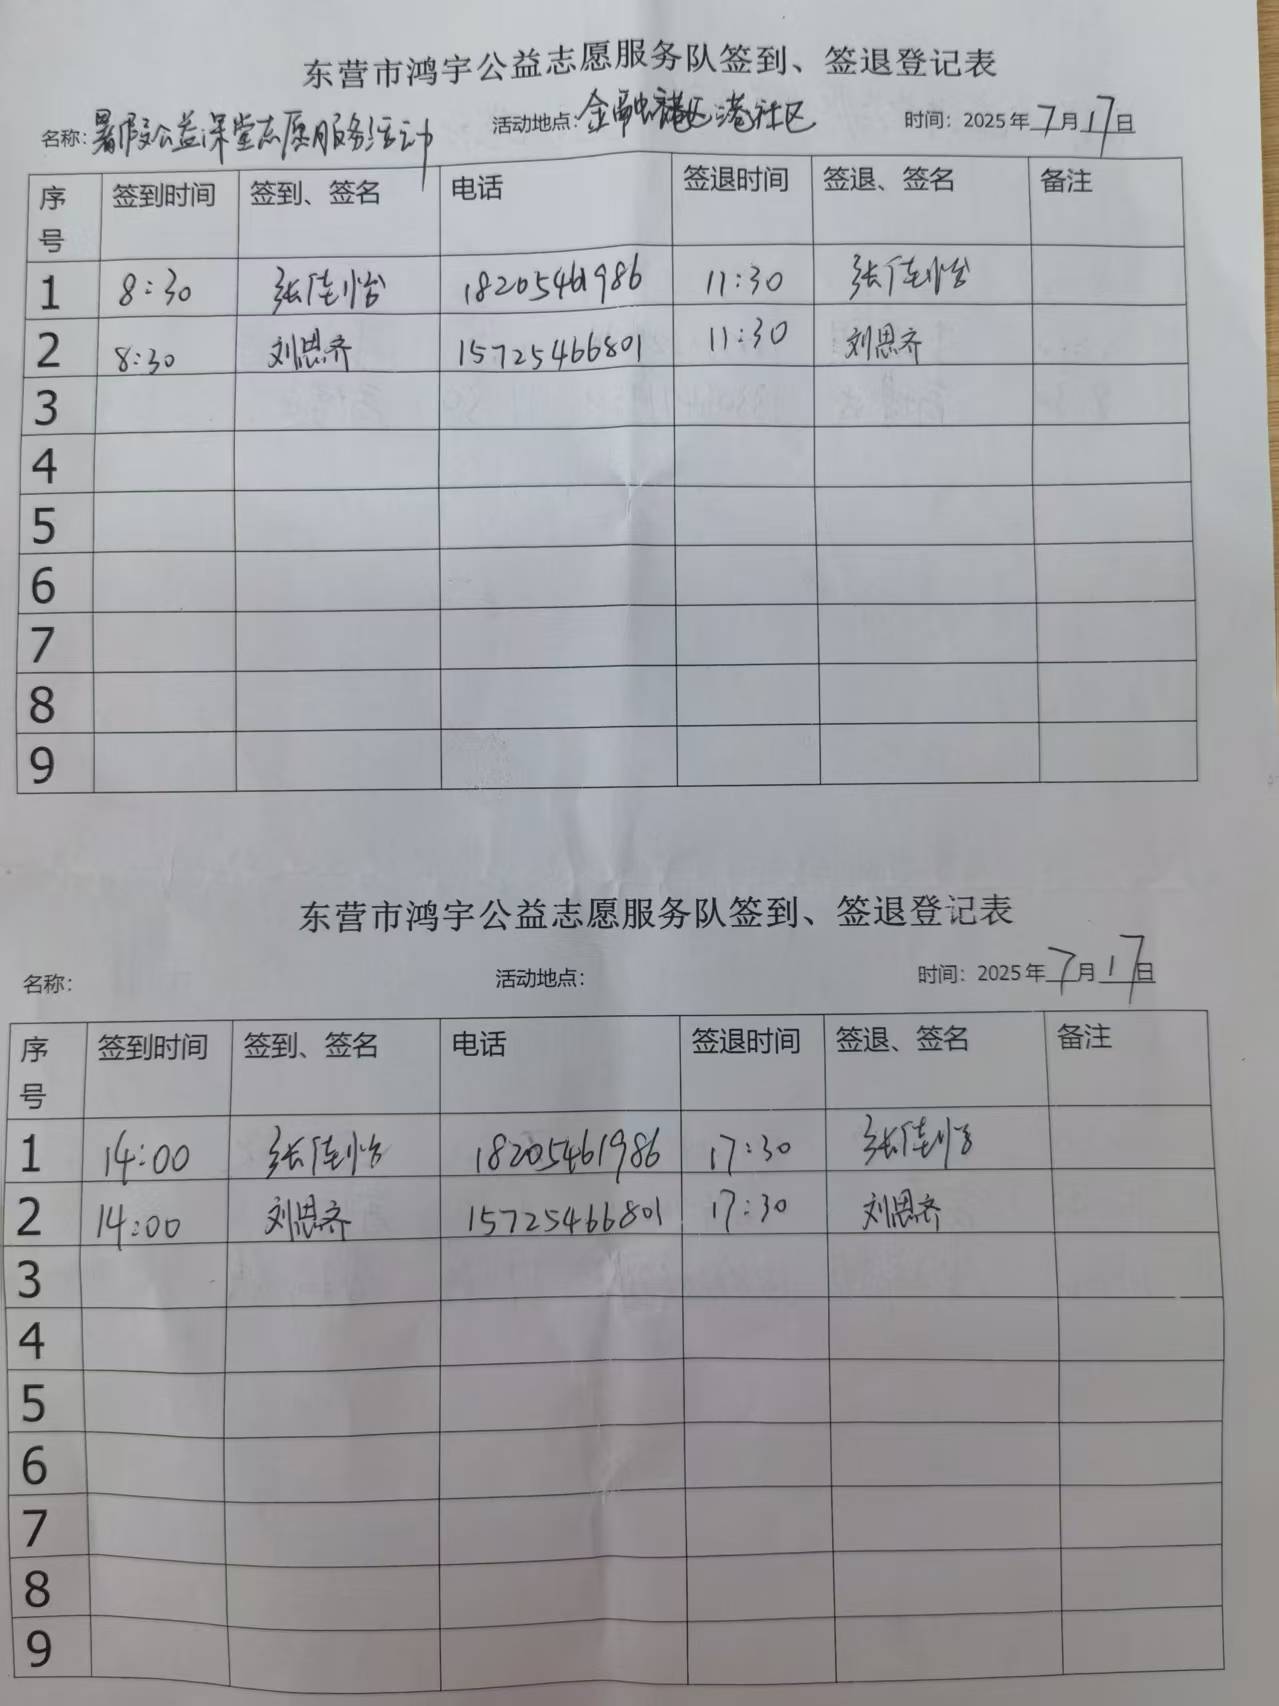 东营市鸿宇公益志愿服务队签到、签退登记表
名称：暑假公益课堂志愿服务活动 活动地点：金融港区港社区 时间：2025年7月17日
序号 签到时间 签到、签名 电话 签退时间 签退、签名 备注
1 8:30 张佳怡 18205461986 11:30 张佳怡
2 8:30 刘思齐 15725466801 11:30 刘思齐
3
4
5
6
7
8
9
东营市鸿宇公益志愿服务队签到、签退登记表
名称： 活动地点： 时间：2025年7月17日
序号 签到时间 签到、签名 电话 签退时间 签退、签名 备注
1 14:00 张佳怡 18205461986 17:30 张佳怡
2 14:00 刘思齐 15725466801 17:30 刘思齐
3
4
5
6
7
8
9